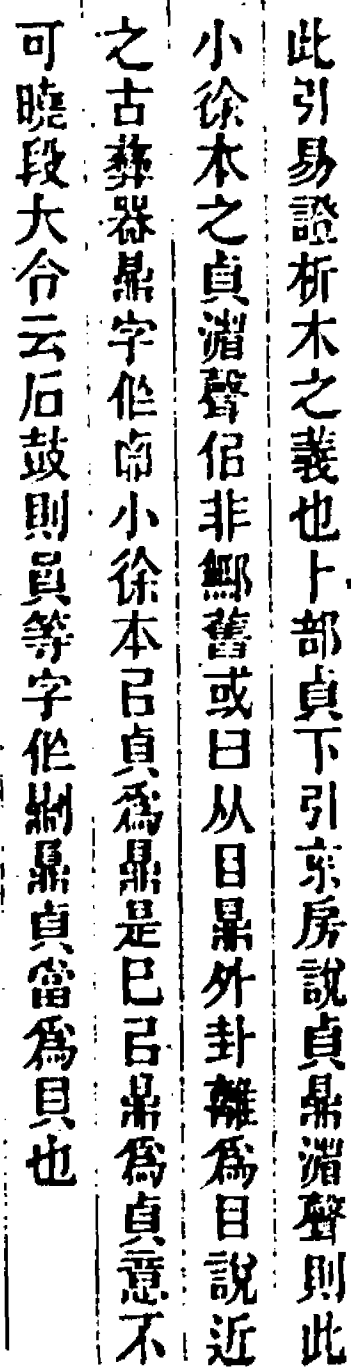 此引易證析木之義也卜部貞下引京房說貞鼎渻聲則此
小徐本之貞渻聲佀非鄦舊或曰从目鼎外卦離爲目說近
之古彝器鼎字作小徐本㠯貞爲鼎是巳㠯鼎爲貞意不
可曉段大令云石鼓則員等字作鼎貞當爲貝也